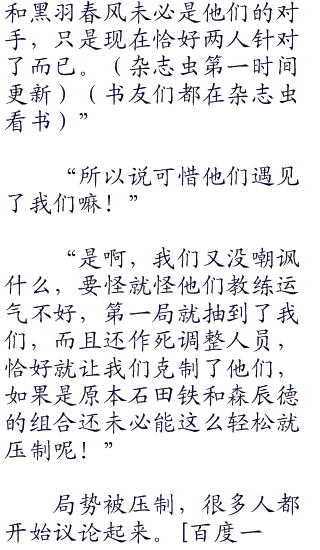 和黑羽春风未必是他们的对
手，只是现在恰好两人针对
了而已。（杂志虫第一时间
更新）（书友们都在杂志虫
看书）”
“所以说可惜他们遇见
了我们嘛！”
“是啊，我们又没嘲讽
什么，要怪就怪他们教练运
气不好，第一局就抽到了我
们，而且还作死调整人员，
恰好就让我们克制了他们，
如果是原本石田铁和森辰德
的组合还未必能这么轻松就
压制呢！”
局势被压制，很多人都
开始议论起来。[百度一